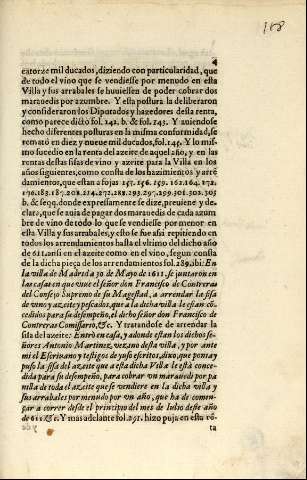 168
4
catorze mil ducados, diziendo con particularidad, que
de todo el vino que se vendiesse por menudo en esta
Villa y sus arrabales se huuiessen de poder cobrar dos
marauedis por azumbre. Y esta postura la deliberaron
y consideraron los Diputados y hazedores desta renta,
como parece dicto fol. 142. b. & fol. 143. Y auiendose
hecho diferentes posturas en la misma conformidad, se
remató en diez y nueue mil ducados, fol. 145. Y lo mis-
mo sucedio en la renta del azeite de aquel año, y en las
rentas destas sisas de vino y azeite para la Villa en los
años siguientes, como consta de los hazimientos y arré
damientos, que están a fojas 157. 156. 159. 162. 164. 172.
176. 185. 187. 208. 214. 272. 289. 293. 297. 299. 301. 302. 303
b. & seqq. donde expressamente se dize, preuiene y de-
clara, que se auia de pagar dos marauedis de cada azum
bre de vino de todo lo que se vendiesse por menor en
esta Villa y sus arrabales, y esto se fue assi repitiendo en
todos los arrendamientos hasta el vltimo del dicho año
de 611. assi en el azeite como en el vino, segun consta
de la dicha pieça de los arrendamientos fol. 289. ibi: En
la villa de Madrid a 30. de Mayo de 1611. se juntaron en
las casas en que viue el señor don Francisco de Contreras
del Consejo Supremo de su Magestad, a arrendar la sisa
de vino y azeite y pescados, que a la dicha villa le están cõ-
cedidos para su desempeño, el dicho señor don Francisco de
Contreras Comissario, &c. Y tratandose de arrendar la
sisa del azeite: Entró en casa, y adonde estan los dichos se-
ñores Antonio Martinez, vezino desta villa, y por ante
mi el Escriuano y testigos de yuso escritos, dixo, que ponia y
puso la sisa del azeite que a esta dicha Villa le está conce-
dida para su desempeño, para cobrar vn marauedi por pa
nilla de todo el azeite que se vendiere en la dicha villa y
sus arrabales por menudo por vn año, que ha de comen-
çar a correr desde el principio del mes de Iulio deste año
de 611. &c. Y mas adelante fol. 291. hizo puja en esta rẽ-
ta